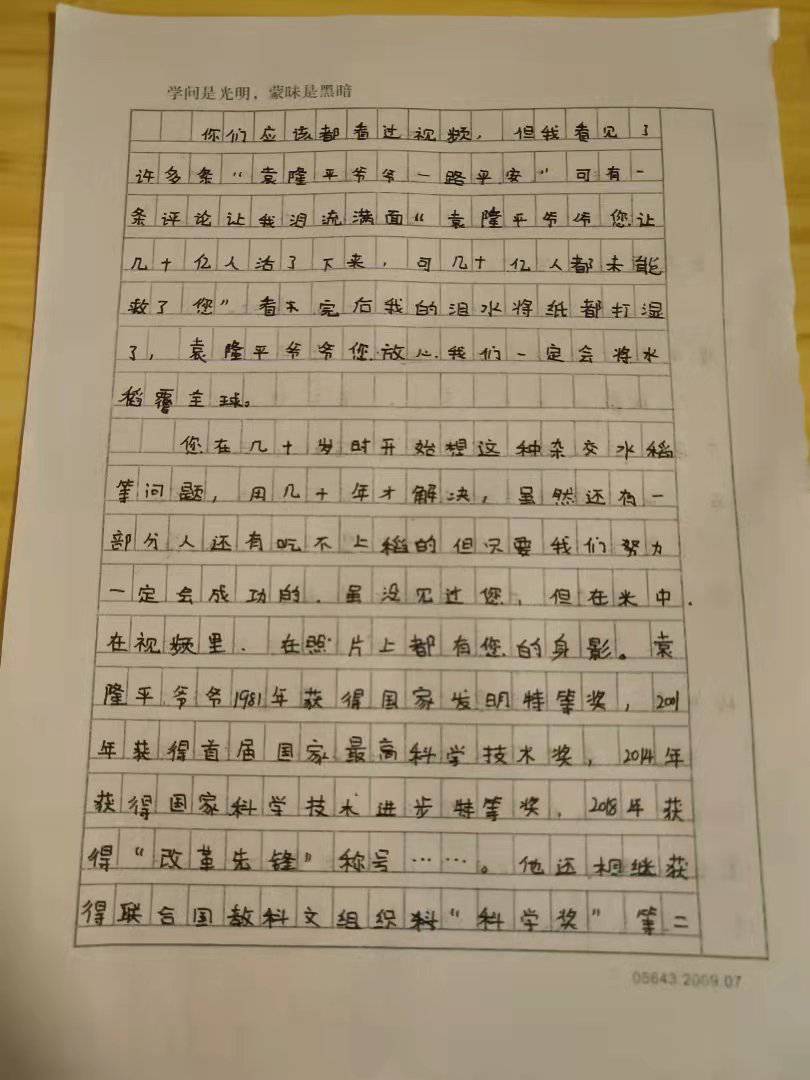 学问是光明，蒙昧是黑暗
你们应该都看过视频，但我看见了
许多条“袁隆平爷爷一路平安”可有一
条评论让我泪流满面“袁隆平爷爷您让
几十亿人活了下来，可几十亿人都未能
救了您”看不完后我的泪水将纸都打湿
了，袁隆平爷爷您放心我们一定会将水
稻覆全球。
您在几十岁时开始想这种杂交水稻
等问题，用几十年才解决，虽然还有一
部分人还有吃不上稻的但只要我们努力
一定会成功的．虽没见过您，但在米中．
在视频里．在照片上都有您的身影。袁
隆平爷爷1981年获得国家发明特等奖，2001
年获得首届国家最高科学技术奖，2014年
获得国家科学技术进步特等奖，2018年获
得“改革先锋”称号……。他还相继获
得联合国教科文组织科“科学奖”等二
05643.2009.07